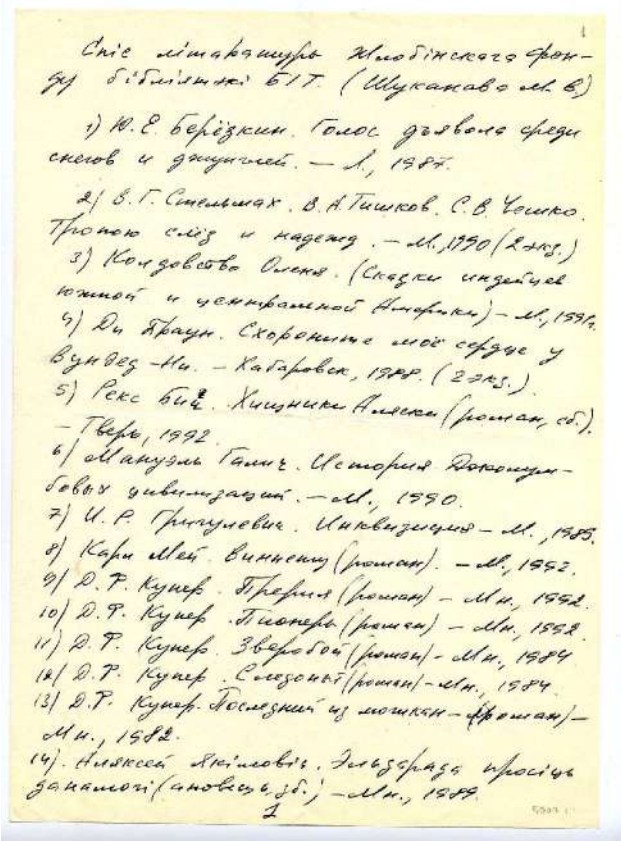 1
Спіс літаратуры Жлобінскага фон-
ду бібліятэкі БІТ. (Шуканава М. В.)
1) Ю. Е. Берёзкин. Голос дьявола среди
снегов и джунглей. — Л., 1987.
2) В. Г. Стельмах. В. А. Тишков. С. В. Чешко.
Тропою слёз и надежд. — М., 1990 (2 экз.)
3) Колдовство Оленя. (Сказки индейцев
южной и центральной Америки) — М., 1991г.
4) Ди Браун. Схороните моё сердце у
Вундед-Ни. — Хабаровск, 1988. (2 экз.)
5) Рекс Бич. Хищники Аляски (роман, сб.).
— Тверь, 1992.
6) Мануэль Галич. История Доколум-
бовых цивилизаций. — М., 1990.
7) И. Р. Григулевич. Инквизиция — М., 1985.
8) Карл Мей. Виннету (роман). — М., 1992.
9) Д. Ф. Купер. Прерия (роман) — Мн., 1992.
10) Д. Ф. Купер. Пионеры (роман) — Мн., 1992.
11) Д. Ф. Купер. Зверобой (роман) — Мн., 1984
12) Д. Ф. Купер. Следопыт (роман) — Мн., 1984.
13) Д. Ф. Купер. Последний из могикан — (роман) —
Мн., 1982.
14). Аляксей Якімовіч. Эльдарада просіць
дапамогі ( зб.) — Мн., 1989.
1